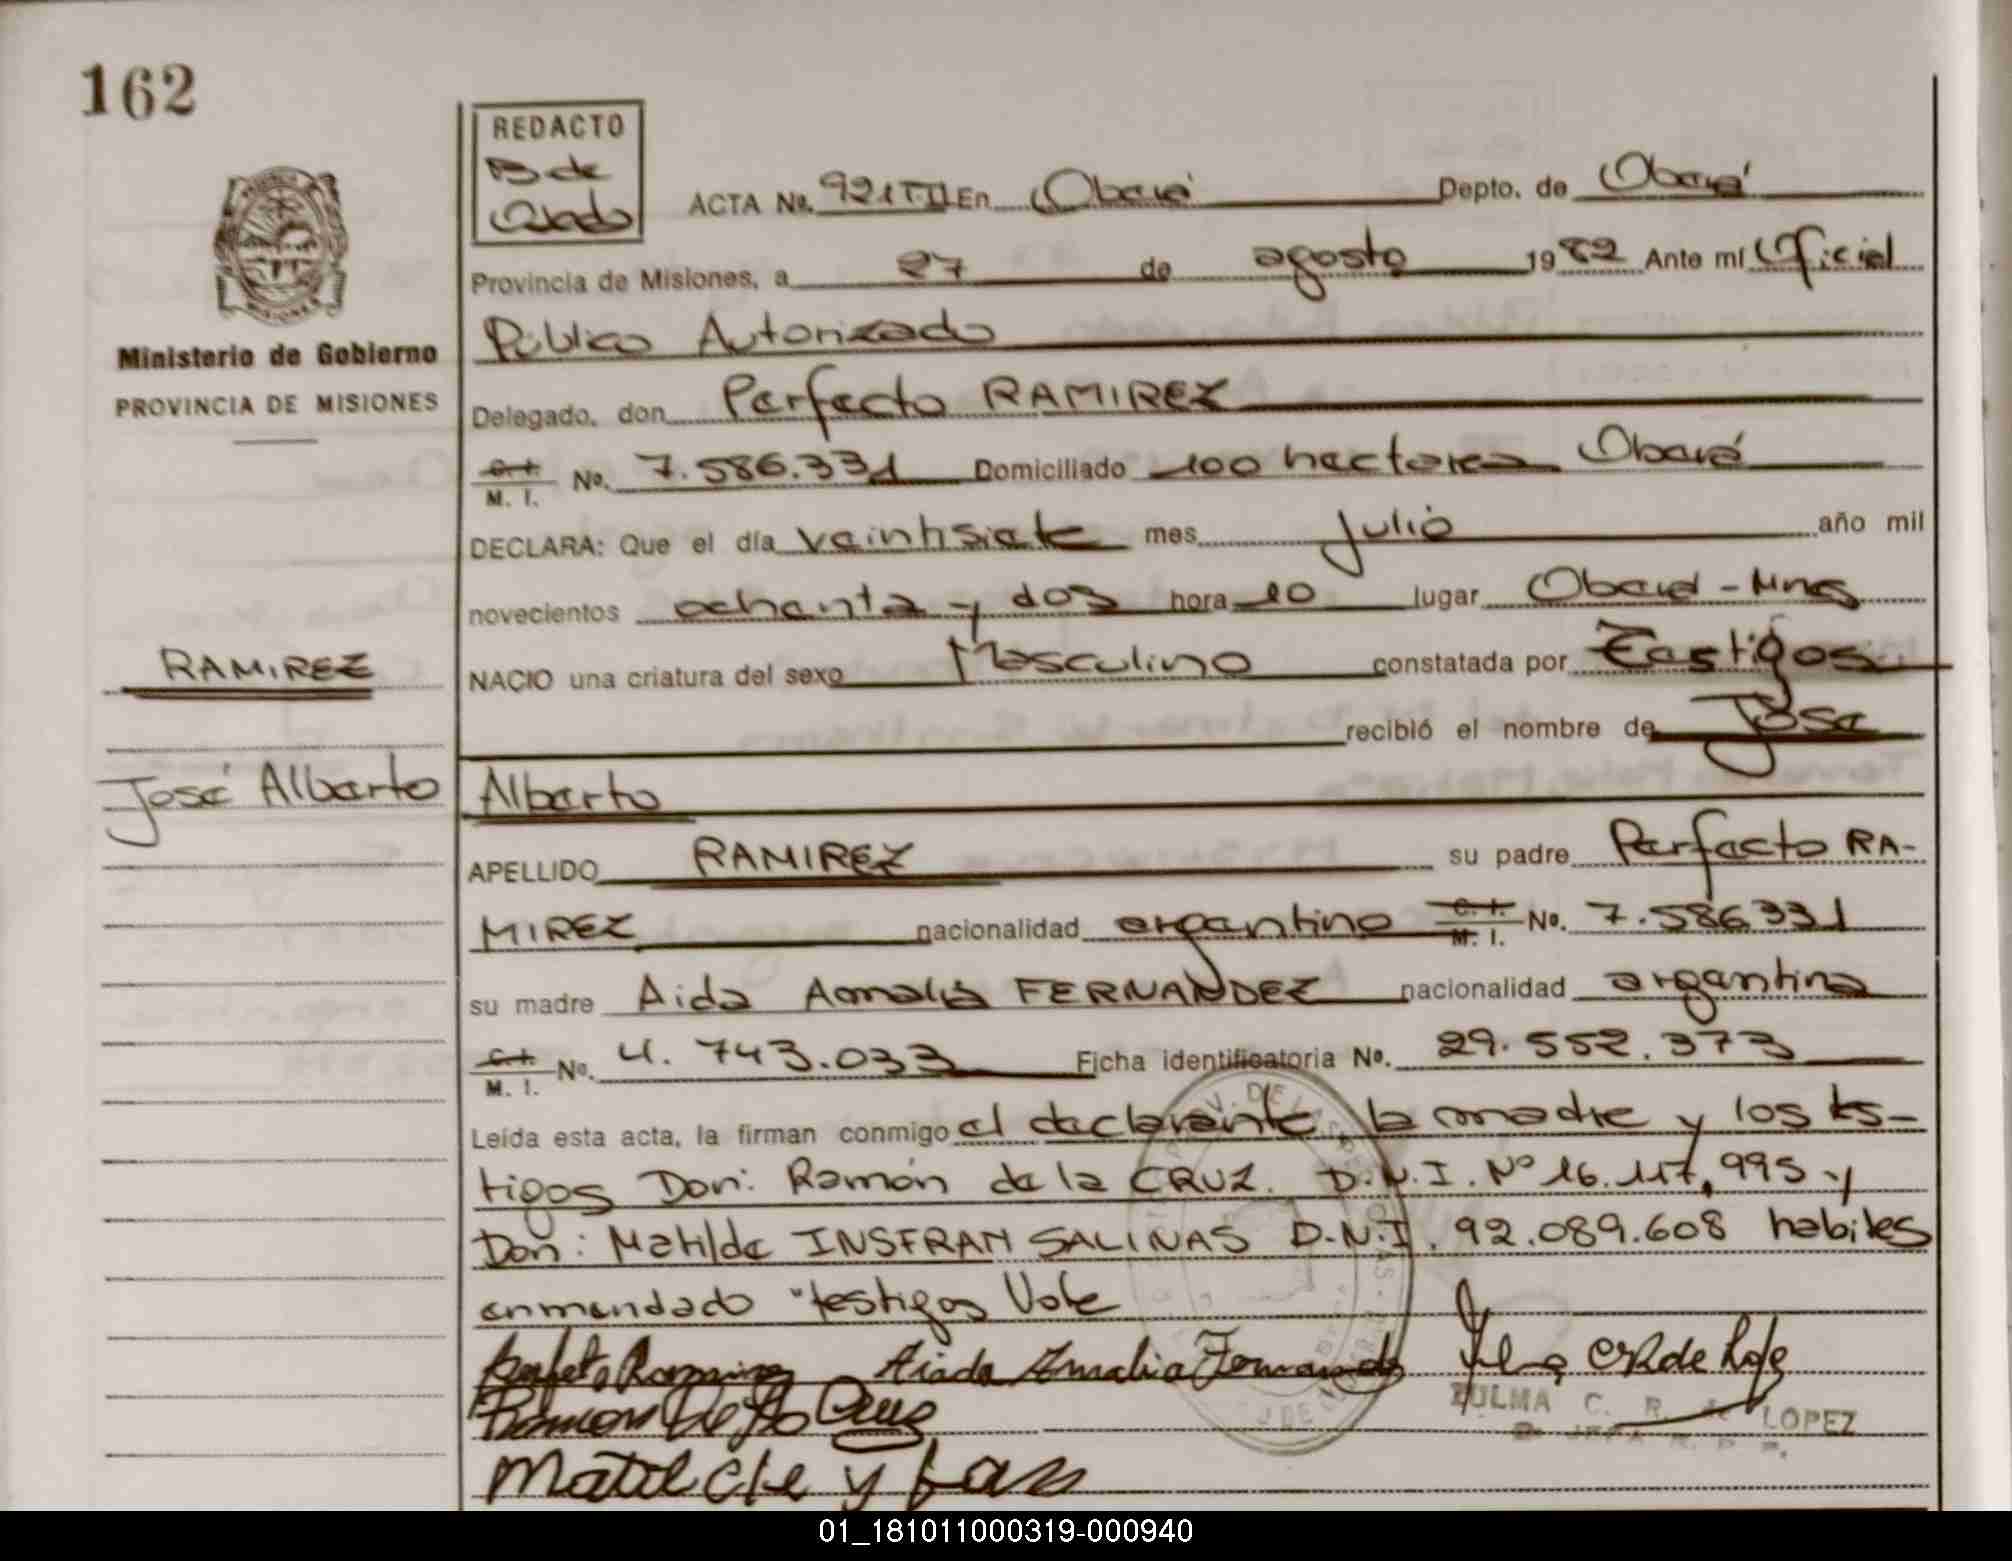 162
REDACTO
B de
ACTA No. 921 T.II En Oberá Depto. de Oberá
Provincia de Misiones, a 27 de agosto 1982 Ante mí Oficial
Público Autorizado
Ministerio de Gobierno
PROVINCIA DE MISIONES
Delegado, don Perfecto RAMIREZ
C. I. M. I. No. 7.586.331 Domiciliado 100 hectarea Oberá
DECLARA: Que el día veintisiete mes Julio año mil
novecientos ochenta y dos hora 10 lugar Oberá - Mnes
RAMIREZ
NACIO una criatura del sexo Masculino constatada por Testigos
recibió el nombre de José
José Alberto
Alberto
APELLIDO RAMIREZ su padre Perfecto RA-
MIREZ nacionalidad argentino C. I. M. I. No. 7.586.331
su madre Aida Amalia FERNANDEZ nacionalidad argentina
C. I. M. I. No. 4.743.033 Ficha identificatoria No. 29.552.373
Leída esta acta, la firman conmigo el declarante, la madre y los tes-
tigos Don: Ramón de la CRUZ. D.N.I. Nº 16.117.995 y
Don: Matilde INSFRAN SALINAS D.N.I. 92.089.608 habiles
enmendado "testigos Vale
Perfeto Ramirez Aida Amalia Fernandez
Ramon De La Cruz
ZULMA C. R. de LOPEZ
Matilde
01_181011000319-000940